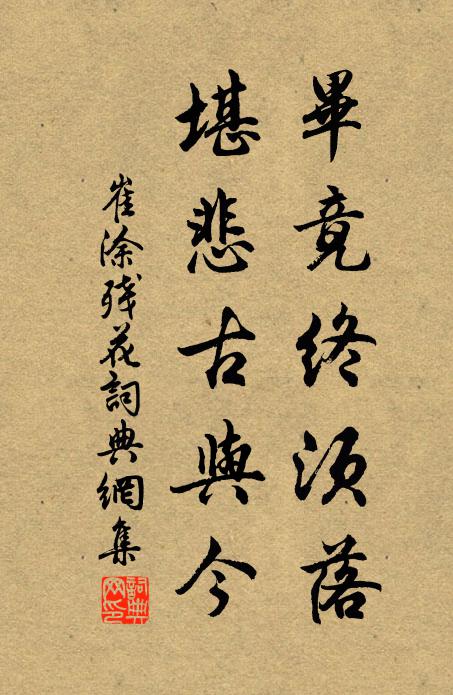 畢竟終須落
堪悲古與今
崔涂殘花詞典網集
詞典網印